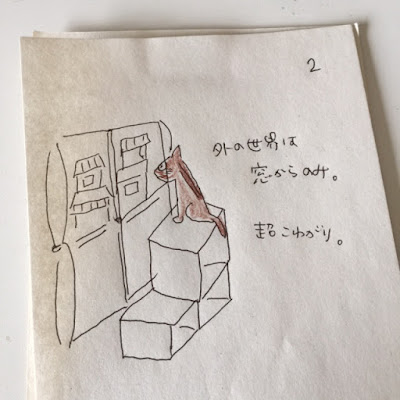 2
外の世界は
窓からのみ。
超こわがり。